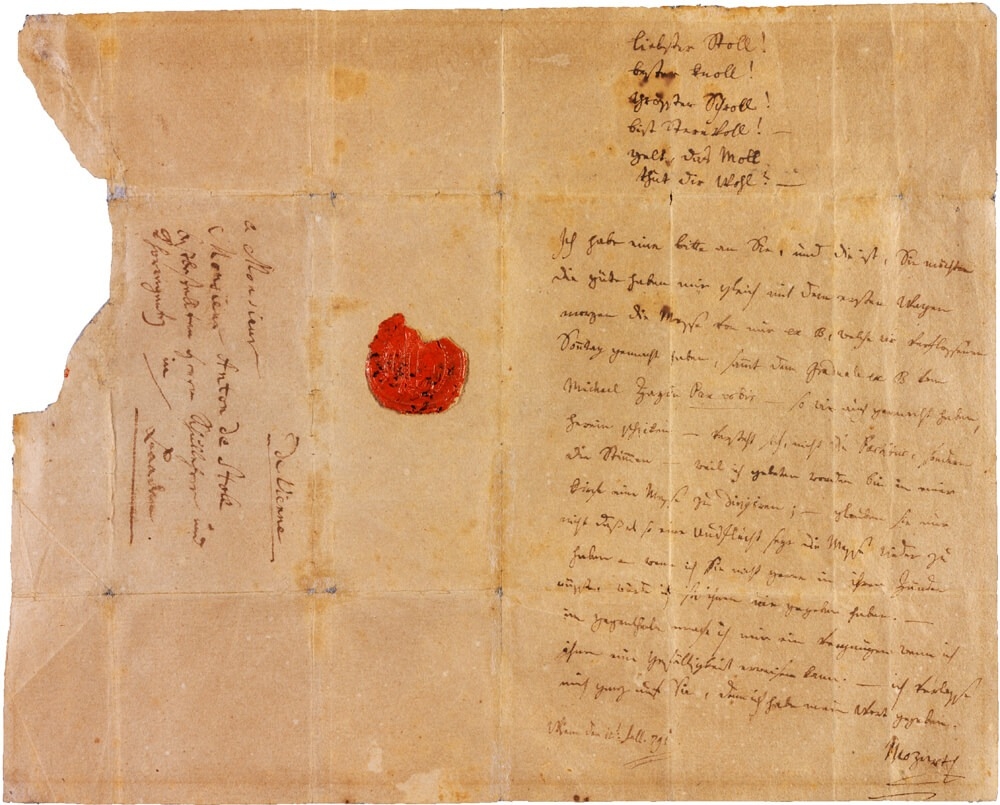 liebster Stoll!
bester knoll!
grösster Schroll!
bist Sternvoll! —
gelt, das Moll
thut dir Wohl? —
Ich habe eine bitte an Sie, und die ist, Sie möchten
die güte haben mir gleich mit dem ersten Wagen
morgen die Messe von mir ex B, welche wir verflossenen
Sonntag gemacht haben, sammt dem Graduale ex B vom
Michael Haydn Pax vobis — so wir auch gemacht haben,
herein schicken — versteht sich, nicht die Partitur, sondern
die Stimmen — weil ich gebeten worden bin in einer
kirche eine Messe zu dirigiren; — glauben sie nur
nicht daß es so eine Ausflucht seye die Messe wieder zu
haben — wenn ich sie nicht gerne in ihren Händen
wüsste, würde ich sie ihnen nie gegeben haben. —
im gegentheile mache ich mir ein vergnügen wenn ich
ihnen eine gefälligkeit erweisen kann. — ich verlasse
mich ganz auf Sie, denn ich habe mein Wort gegeben.
Mozart
Wien den 12t Jull. 791
de Vienne
à Monsieur
Monsieur Anton de Stoll
in
Baaden.